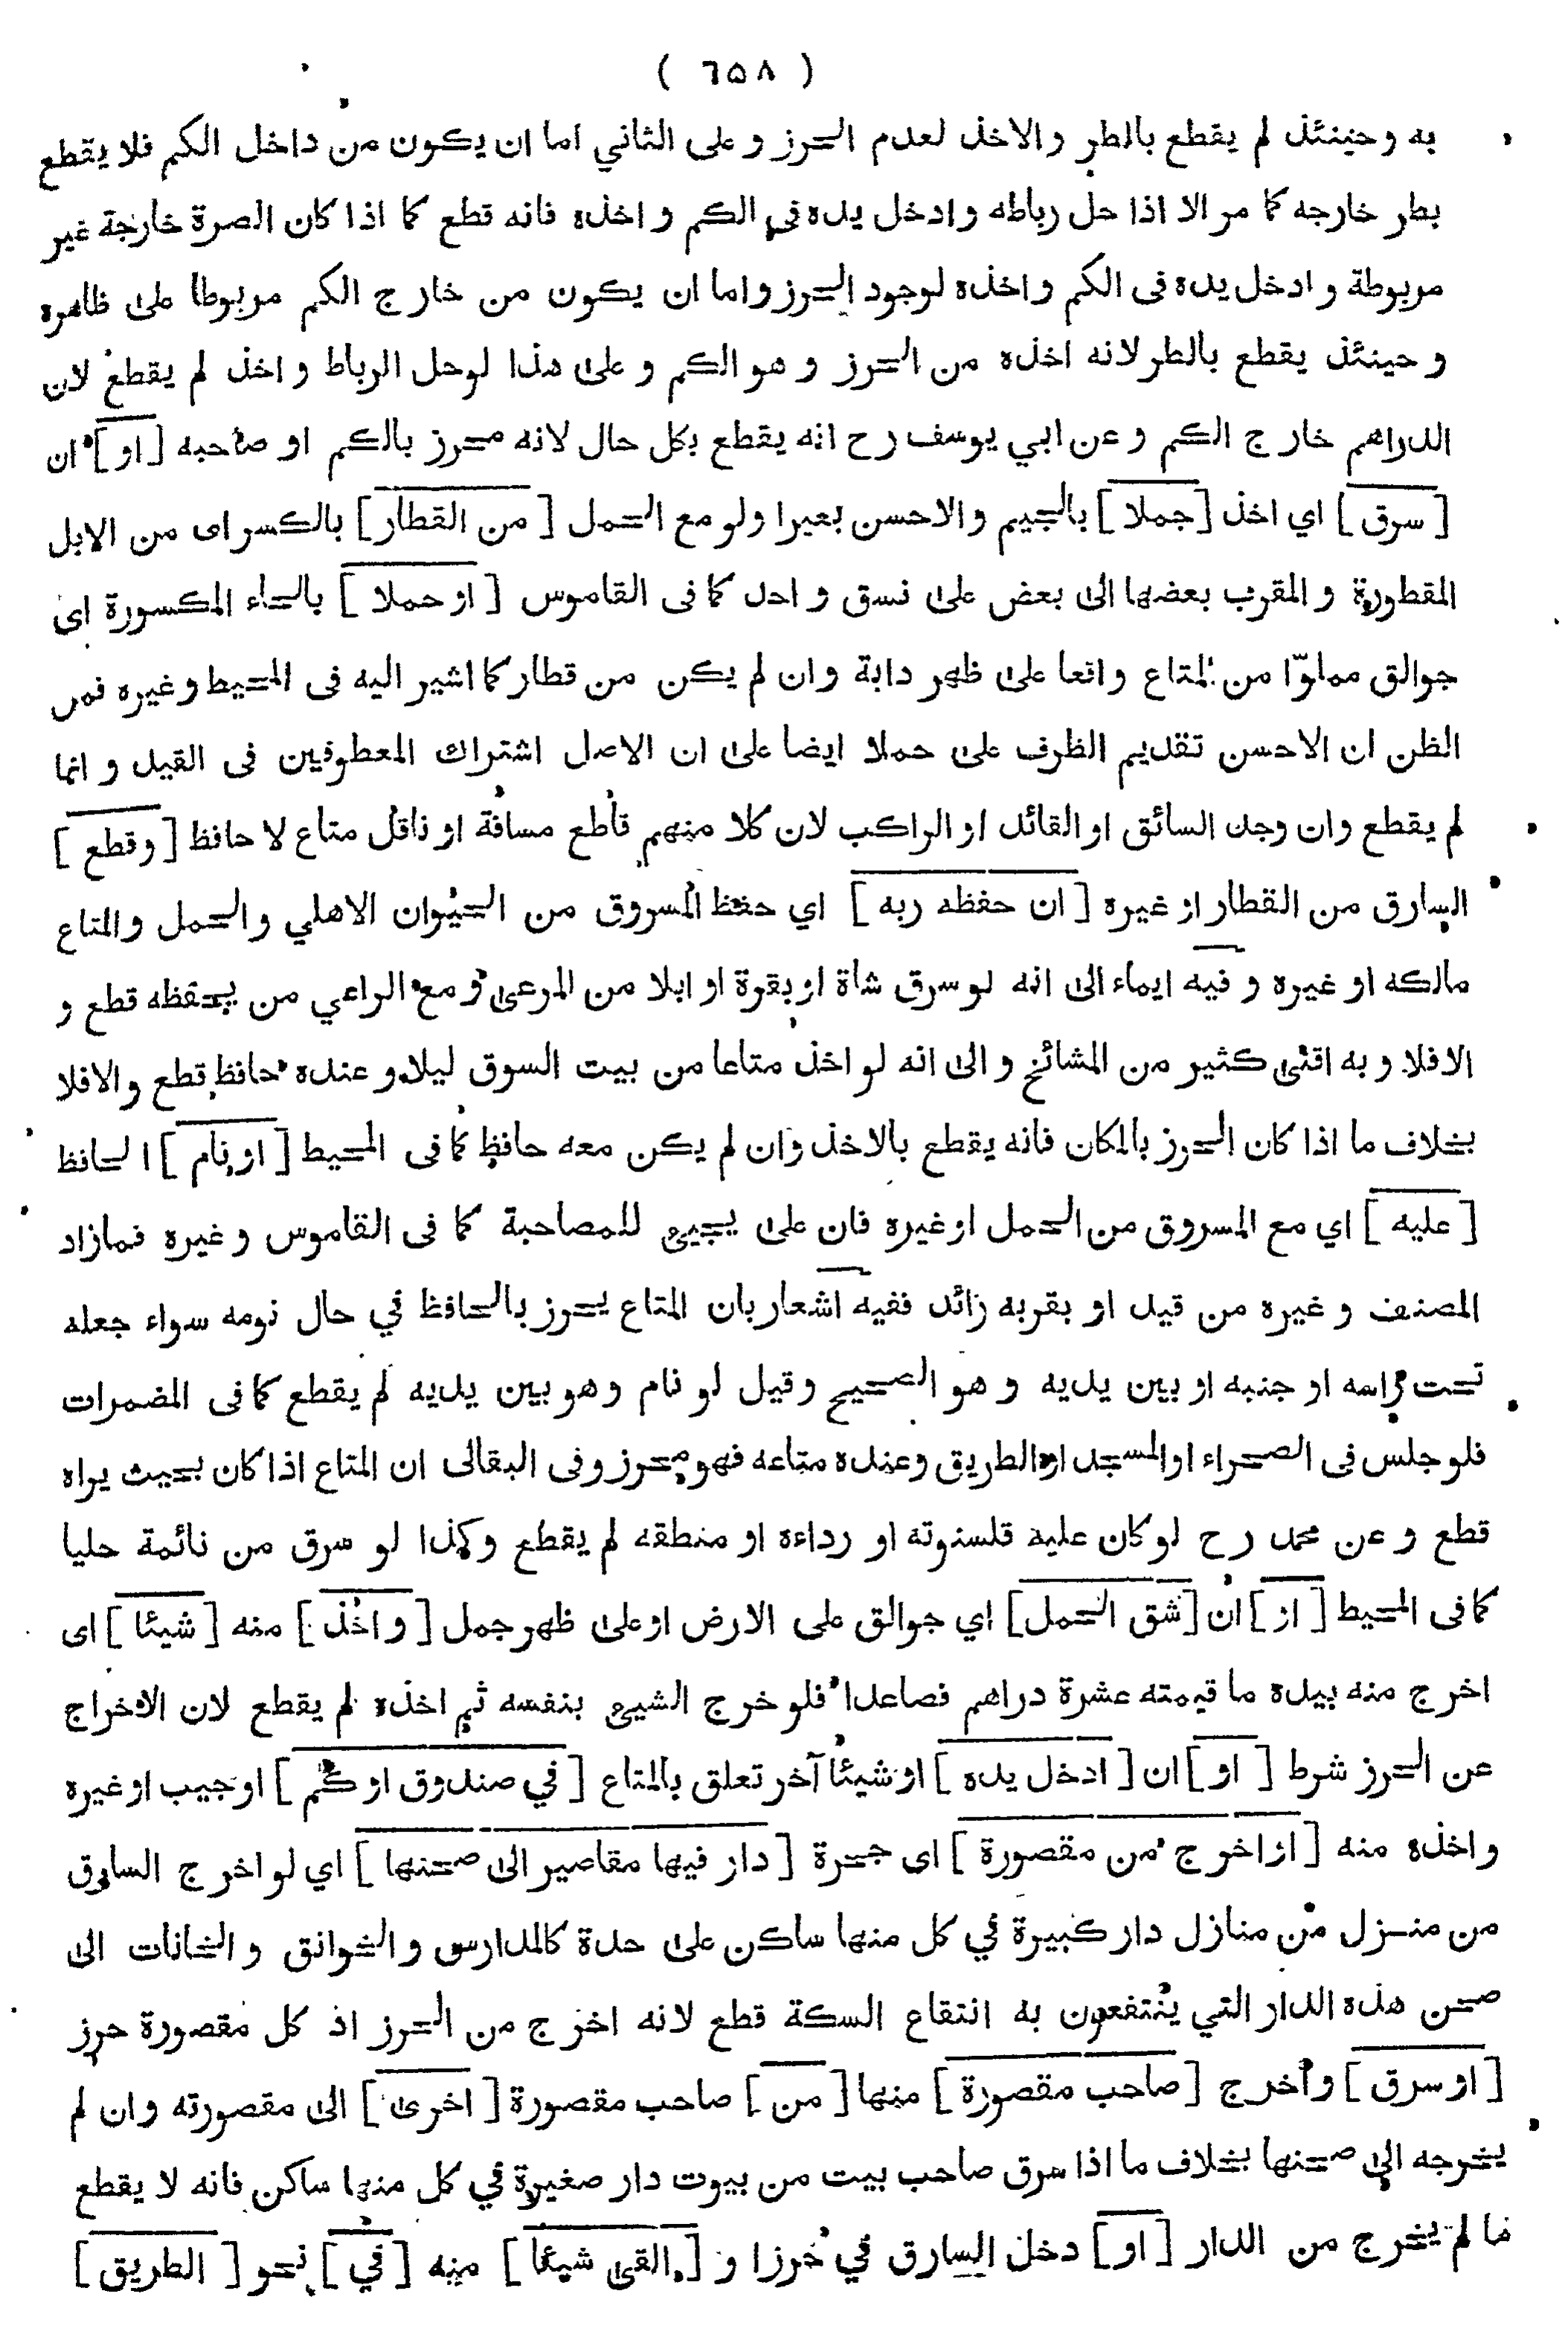 ( ٦٥٨ )
به وحينئذ لم يقطع بالطر والاخذ لعدم الحرز و على الثاني اما ان يكون من داخل الكم فلا يقطع
بطر خارجه كما مر الا اذا حل رباطه وادخل يده في الكم و اخذه فانه قطع كما اذا كان الصرة خارجة غير
مربوطة و ادخل يده فى الكم و اخذه لوجود الحرز واما ان يكون من خارج الكم مربوطا على ظاهره
و حينئذ يقطع بالطر لانه اخذه من الحرز و هو الكم و على هذا لو حل الرباط و اخذ لم يقطع لان
الدراهم خارج الكم و عن ابي يوسف رح انه يقطع بكل حال لانه محرز بالكم او صاحبه [ او ] ان
[ سرق ] اي اخذ [ جملا ] بالجيم والاحسن بعيرا ولو مع الحمل [ من القطار ] بالكسر اى من الابل
المقطورة و المقرب بعضها الى بعض على نسق و احد كما فى القاموس [ او حملا ] بالحاء المكسورة اى
جوالق مملوّا من المتاع واقعا على ظهر دابة وان لم يكن من قطار كما اشير اليه فى المحيط و غيره فمن
الظن ان الاحسن تقديم الظرف على حملا ايضا على ان الاصل اشتراك المعطوفين فى القيد و انما
لم يقطع وان وجد السائق او القائد او الراكب لان كلا منهم قاطع مسافة او ناقل متاع لا حافظ [ وقطع ]
السارق من القطار او غيره [ ان حفظه ربه ] اي حفظ المسروق من الحيوان الاهلي و الحمل والمتاع
مالكه او غيره و فيه ايماء الى انه لو سرق شاة او بقرة او ابلا من المرعى و مع الراعي من يحفظه قطع و
الا فلا و به افتى كثير من المشائخ و الى انه لو اخذ متاعا من بيت السوق ليلا و عنده حافظ قطع و الا فلا
بخلاف ما اذا كان الحرز بالمكان فانه يقطع بالاخذ وان لم يكن معه حافظ كما فى المحيط [ او نام ] الحافظ
[ عليه ] اي مع المسروق من الحمل او غيره فان على يجيئ للمصاحبة كما فى القاموس و غيره فما زاد
المصنف و غيره من قيد او بقربه زائد ففيه اشعار بان المتاع يحرز بالحافظ في حال نومه سواء جعله
تحت راسه او جنبه او بين يديه و هو الصحيح وقيل لو نام وهو بين يديه لم يقطع كما فى المضمرات
فلو جلس فى الصحراء او المسجد او الطريق وعنده متاعه فهو محرز وفى البقالى ان المتاع اذا كان بحيث يراه
قطع و عن محمد رح لو كان عليه قلسنوته او رداءه او منطقه لم يقطع وكذا لو سرق من نائمة حليا
كما فى المحيط [ او ] ان [ شق الحمل ] اي جوالق على الارض او على ظهر جمل [ و اخذ ] منه [ شيئا ] اى
اخرج منه بيده ما قيمته عشرة دراهم فصاعدا فلو خرج الشيئ بنفسه ثم اخذه لم يقطع لان الاخراج
عن الحرز شرط [ او ] ان [ ادخل يده ] او شيئا آخر تعلق بالمتاع [ في صندوق او كم ] او جيب او غيره
و اخذه منه [ او اخرج من مقصورة ] اى حجرة [ دار فيها مقاصير الى صحنها ] اي لو اخرج السارق
من منزل من منازل دار كبيرة في كل منها ساكن على حدة كالمدارس و الخوانق و الخانات الى
صحن هذه الدار التي ينتفعون به انتفاع السكة قطع لانه اخرج من الحرز اذ كل مقصورة حرز
[ او سرق ] و اخرج [ صاحب مقصورة ] منها [ من ] صاحب مقصورة [ اخرى ] الى مقصورته وان لم
يخرجه الى صحنها بخلاف ما اذا سرق صاحب بيت من بيوت دار صغيرة في كل منها ساكن فانه لا يقطع
ما لم يخرج من الدار [ او ] دخل السارق في حرزا و [ القى شيئا ] منه [ في ] نحو [ الطريق ]